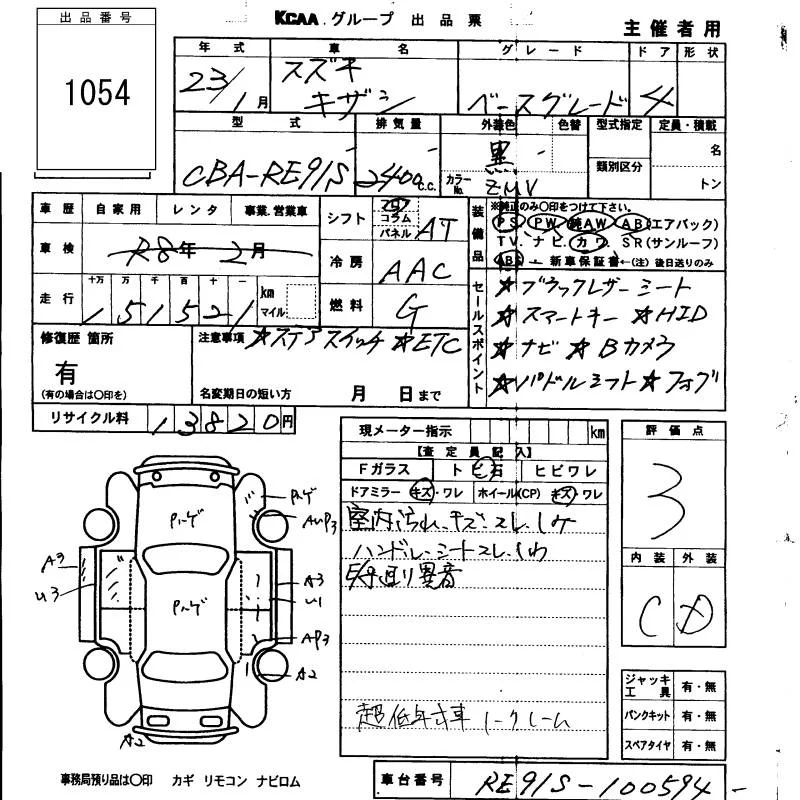 出品番号
1054
KCAA グループ 出品票
主催者用
年式 車名 グレード ドア 形状
23/1月 スズキ キザシ ベースグレード 4
型式 排気量 外装色 色替 型式指定 定員・積載
CBA-RE91S 2400c.c. 黒 類別区分 名
カラーNo. ZMV トン
車歴 自家用 レンタ 事業.営業車
車検 R8年2月
走行 十万 万 千 百 十 一
151521 km マイル
シフト コラム パネル AT
冷房 AAC
燃料 G
装備品 ※純正のみ〇印をつけて下さい。
PS PW 純AW AB(エアバック)
TV. ナビ. カワ. SR(サンルーフ)
ABS - 新車保証書←(注) 後日送りのみ
セールスポイント
★ブラックレザーシート
★スマートキー ★HID
★ナビ ★Bカメラ
★パドルシフト ★フォグ
修復歴 箇所
有
(有の場合は〇印を)
注意事項 ★ステアスイッチ ★ETC
名変期日の短い方 月 日まで
リサイクル料 13820円
現メーター指示 km
【査定員記入】
Fガラス トビ石 ヒビワレ
ドアミラー キズ・ワレ ホイール(CP) キズ・ワレ
室内汚れ、キズ、スレ、シミ
ハンドル、シートスレ、シワ
異音
超低年式車 ノークレーム
評価点
3
内装 外装
C D
ジャッキ工具 有・無
パンクキット 有・無
スペアタイヤ 有・無
Pハゲ
Pハゲ
AUP3
Pハゲ
A3
U3
A3
U1
AP3
A2
A2
事務局預り品は〇印 カギ リモコン ナビロム
車台番号 RE91S-100594